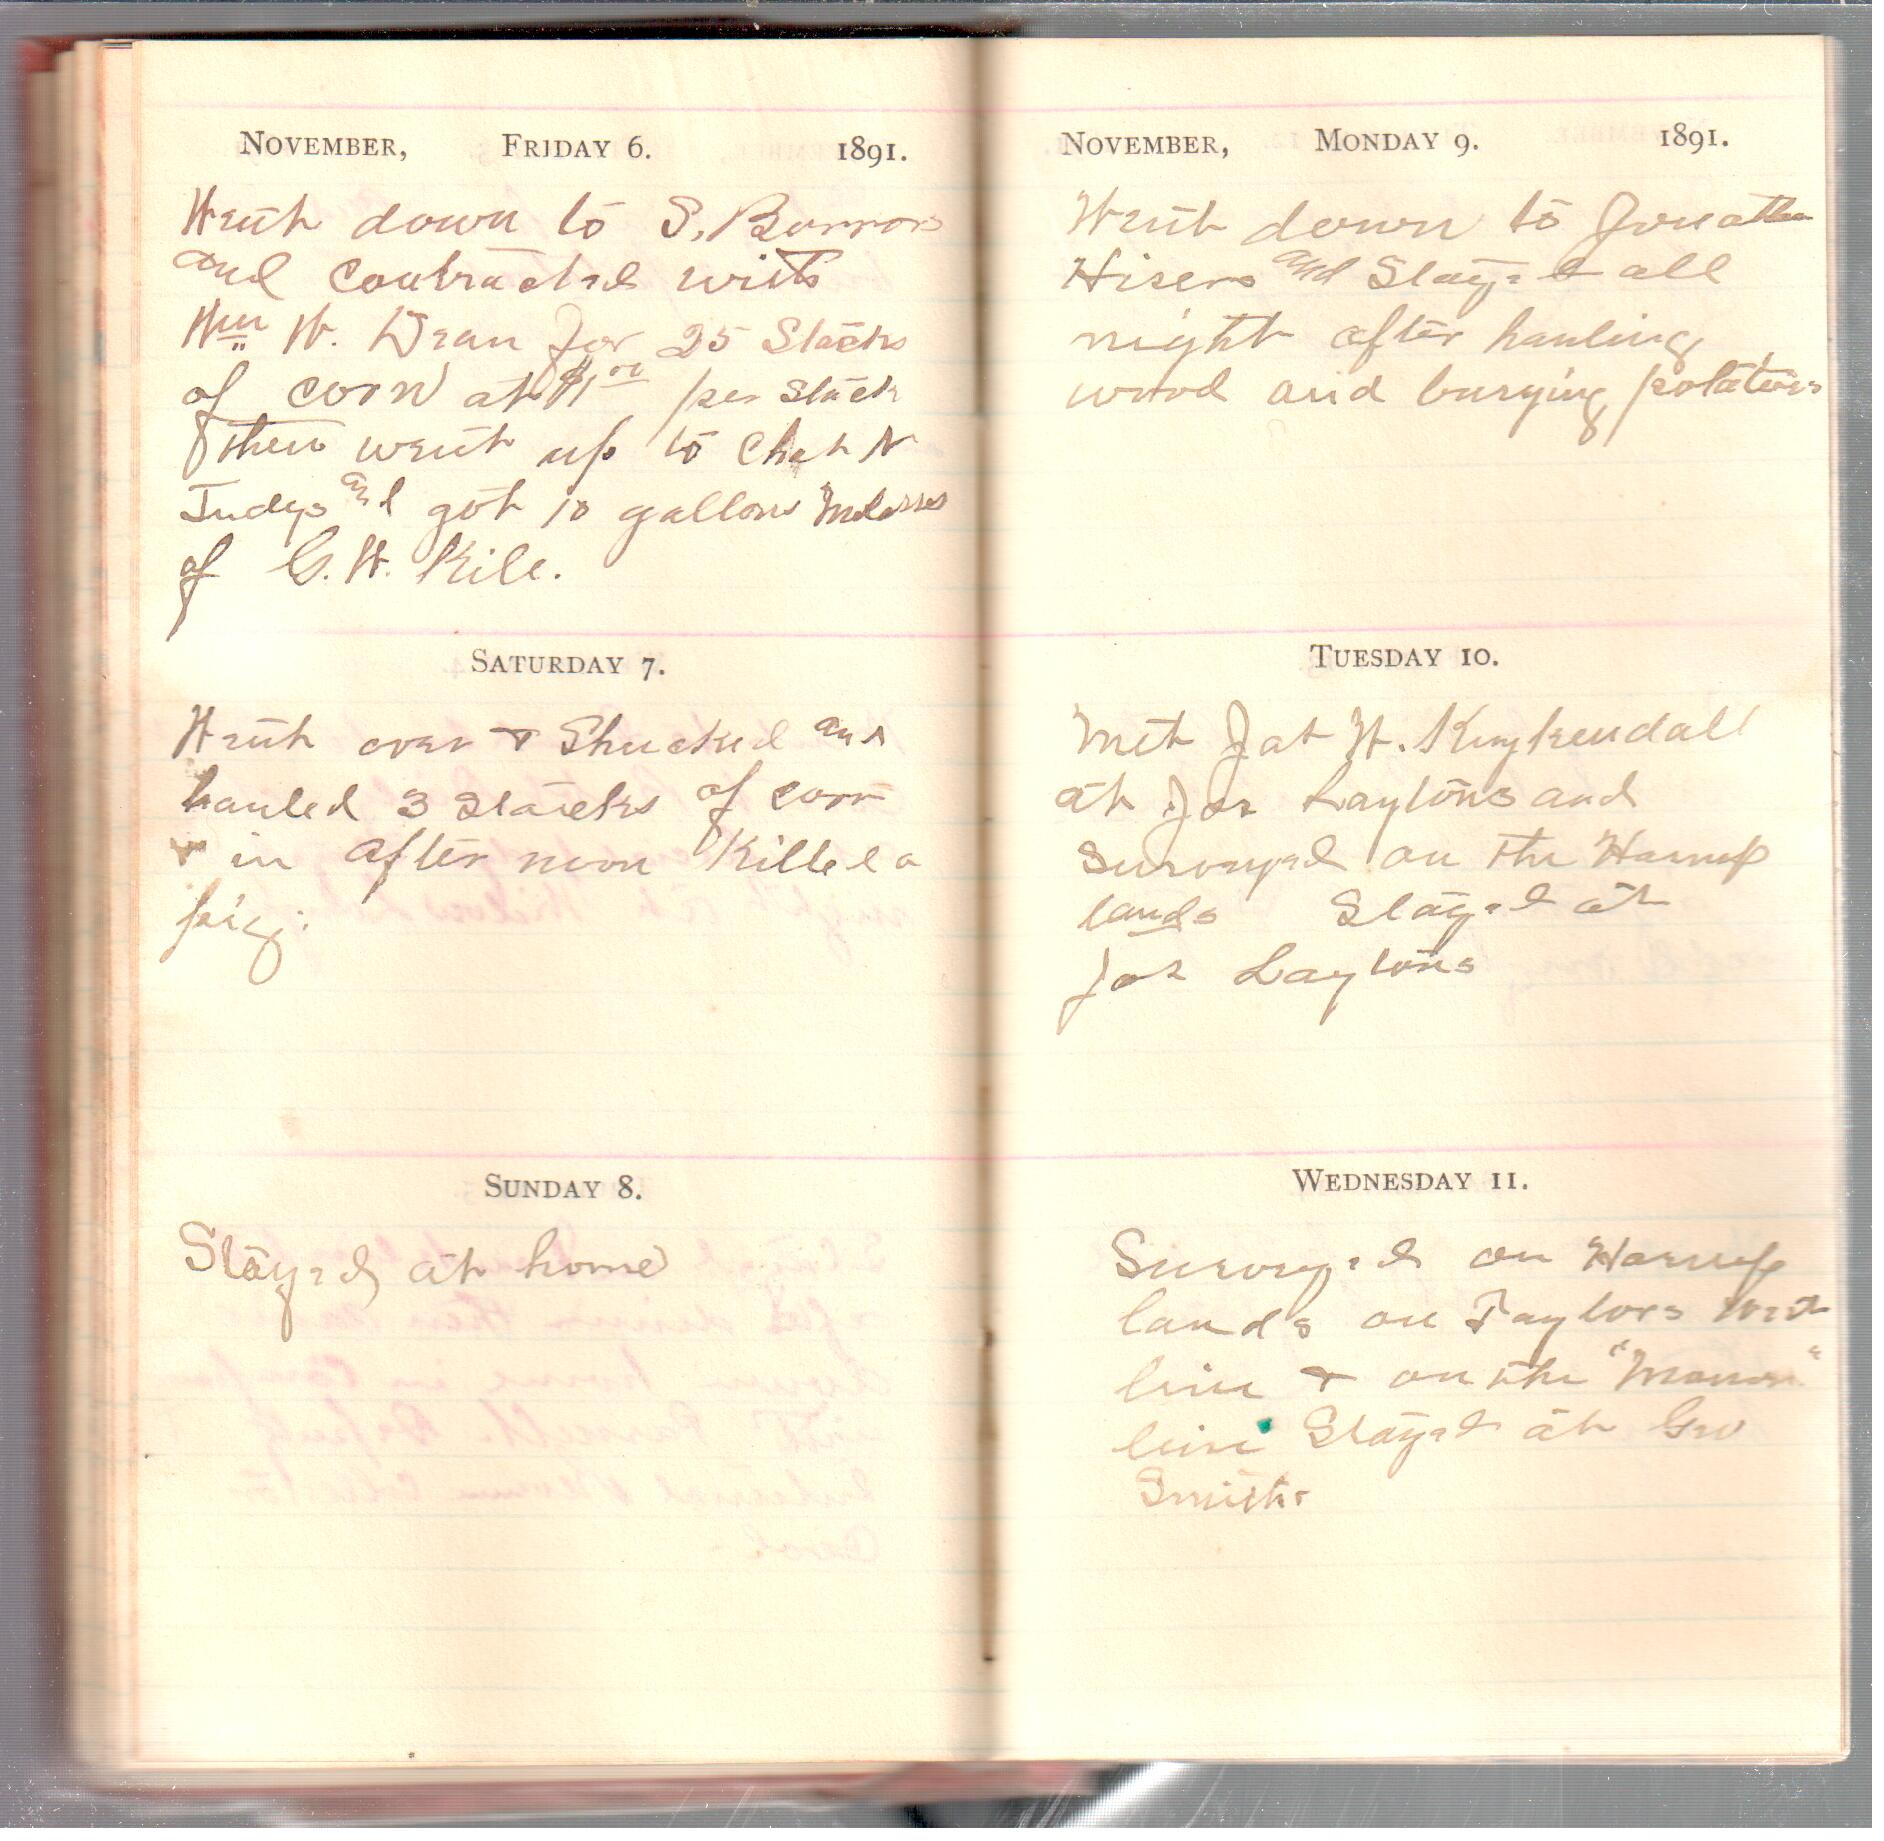 NOVEMBER, FRIDAY 6. 1891.
Went down to S. Borrors
and contracted with
Wm W. Dean for 25 Stacks
of corn at $1.00 per Stack
then went up to Chat N
Judys and got 10 gallons Molasses
of G. W. Kile.
SATURDAY 7.
Went over & Shucked and
hauled 3 Stacks of corn
& in after noon Killed a
pig.
SUNDAY 8.
Stayed at home
NOVEMBER, MONDAY 9. 1891.
Went down to Jonathan
Hisers and Stayed all
night after hauling
wood and burying potatoes
TUESDAY 10.
Met Jas W. Kuykendall
at Joe Laytons and
Surveyed on the Harness
lands Stayed at
Joe Laytons
WEDNESDAY 11.
Surveyed on Harness
lands on Taylors West
line & on the "Manor"
line Stayed at Geo
Smiths